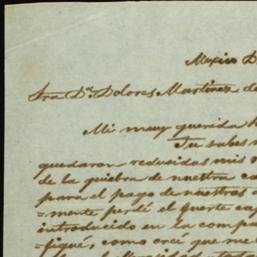 Mexico D
Sra Dª Dolores Martinez de
Mi muy querida
Tu sabes
quedaron reducidos mis
de la quiebra de nuestra ca
para el pago de nuestros
=mente perdí el fuerte cap
introducido en la compa
=figue, como creí que me